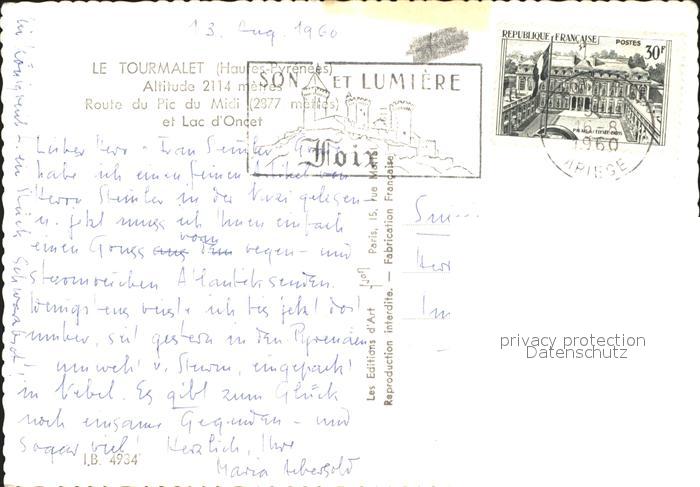 13. Aug. 1960
LE TOURMALET (Hautes-Pyrénées)
Altitude 2114 mètres
Route du Pic du Midi (2877 mètres)
et Lac d'Oncet
SON ET LUMIÈRE
Foix
REPUBLIQUE FRANÇAISE
POSTES
30F
PALAIS ELYSEE PARIS
16-8
1960
ARIEGE
Lieber Herr - Frau
habe ich einen feinen Artikel von
Herrn in der gelesen
u. jetzt muss ich Ihnen einfach
einen Gruss vom regen- und
sturmreichen Atlantik senden.
Wenigstens ich bis jetzt dort
immer, seit gestern in den Pyrenäen
umweht v. Sturm, eingepackt
in Nebel. Es gibt zum Glück
noch einsame Gegenden - und
sogar viel! Herzlich, Ihre
Maria Aebersold
ein Stück
I.B. 4934
Les Editions d'Art Paris, 15, rue Martel
Reproduction interdite. — Fabrication Française
Herr
privacy protection
Datenschutz